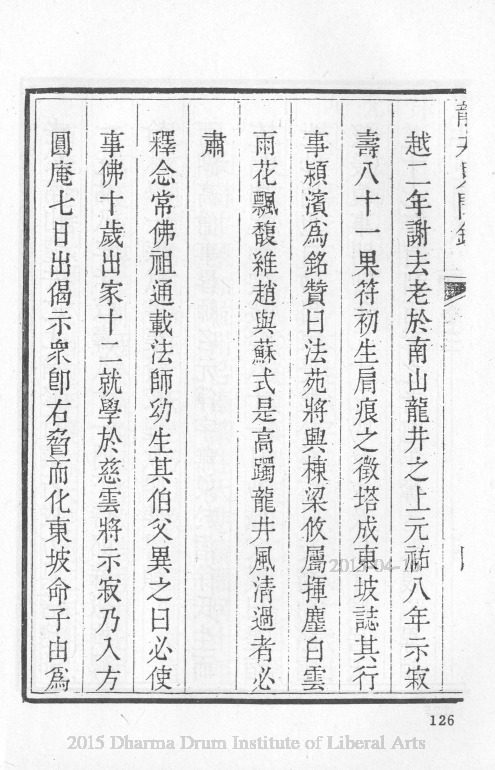 越二年謝去老於南山龍井之上元祐八年示寂
壽八十一果符初生肩痕之徵塔成東坡誌其行
事潁濱爲銘贊曰法苑將興棟梁攸屬揮麈白雲
雨花飄馥維趙與蘇式是高躅龍井風清過者必
肅
釋念常佛祖通載法師幼生其伯父異之曰必使
事佛十歲出家十二就學於慈雲將示寂乃入方
圓庵七日出偈示衆卽右脅而化東坡命子由爲
126
2015 Dharma Drum Institute of Liberal Arts